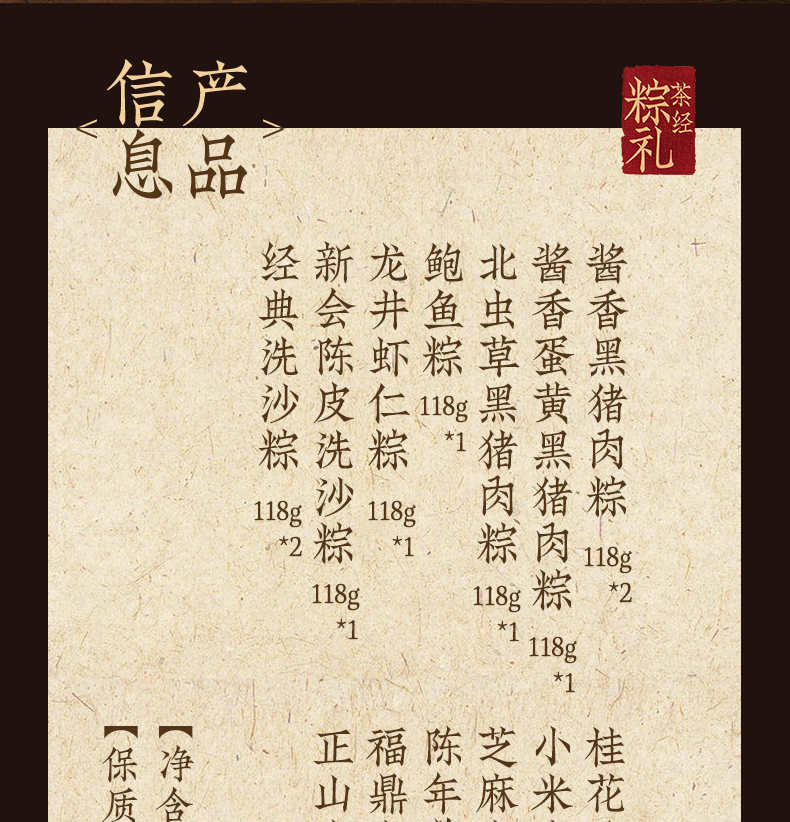 产品
信息
茶经
粽礼
酱香黑猪肉粽 118g*2
酱香蛋黄黑猪肉粽 118g*1
北虫草黑猪肉粽 118g*1
鲍鱼粽 118g*1
龙井虾仁粽 118g*1
新会陈皮洗沙粽 118g*1
经典洗沙粽 118g*2
桂花
小米
芝麻
陈年
福鼎
正山
【净含
【保质